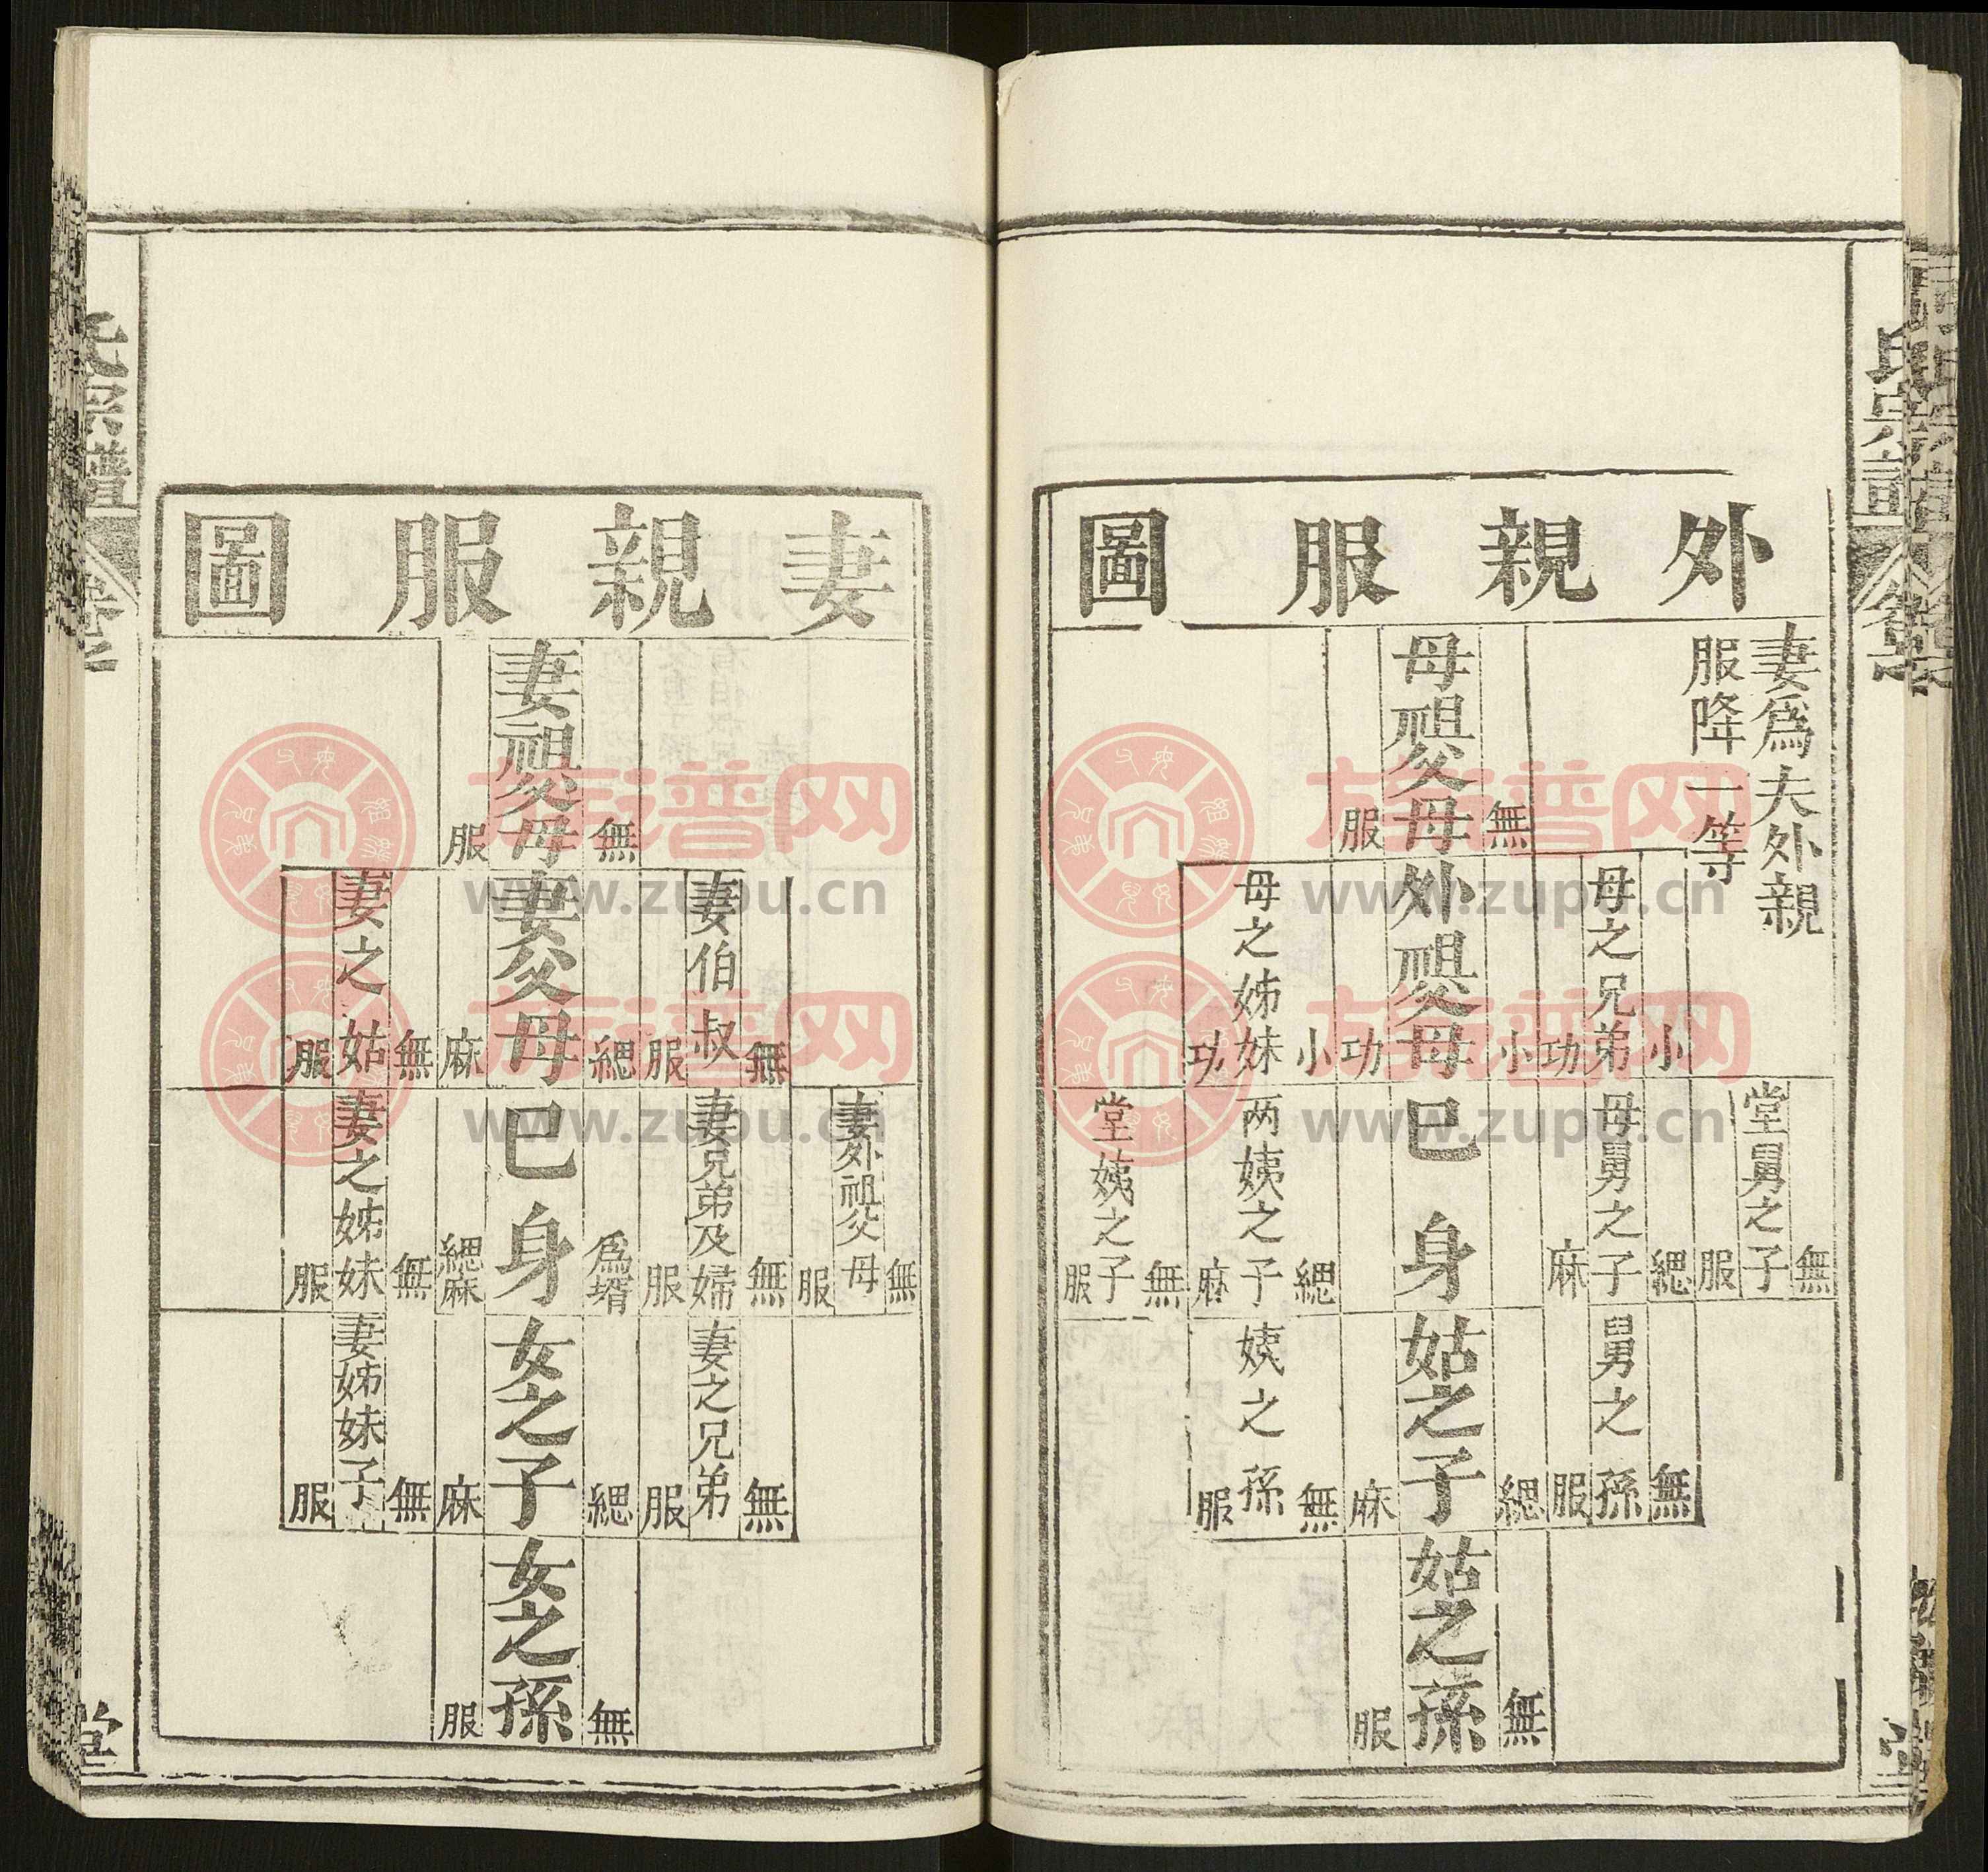 外親服圖
妻爲夫外親
服降一等
無
母祖父母
服
小
母之兄弟
功
小
外祖父母
功
小
母之姊妹
功
無
堂舅之子
服
緦
母舅之子
麻
已身
緦
两姨之子
麻
無
堂姨之子
服
無
舅之孫
服
緦
姑之子
麻
無
姨之孫
服
無
姑之孫
服
妻親服圖
無
妻祖父母
服
無
妻伯叔
服
緦
妻父母
麻
無
妻之姑
服
無
妻外祖父母
服
無
妻兄弟及婦
服
爲壻
已身
緦麻
無
妻之姊妹
服
無
妻之兄弟
服
緦
女之子
麻
無
妻姊妹子
服
無
女之孫
服
氏宗譜
堂
族谱网
www.zupu.cn
族谱网
www.zupu.cn
族谱网
www.zupu.cn
族谱网
www.zupu.cn